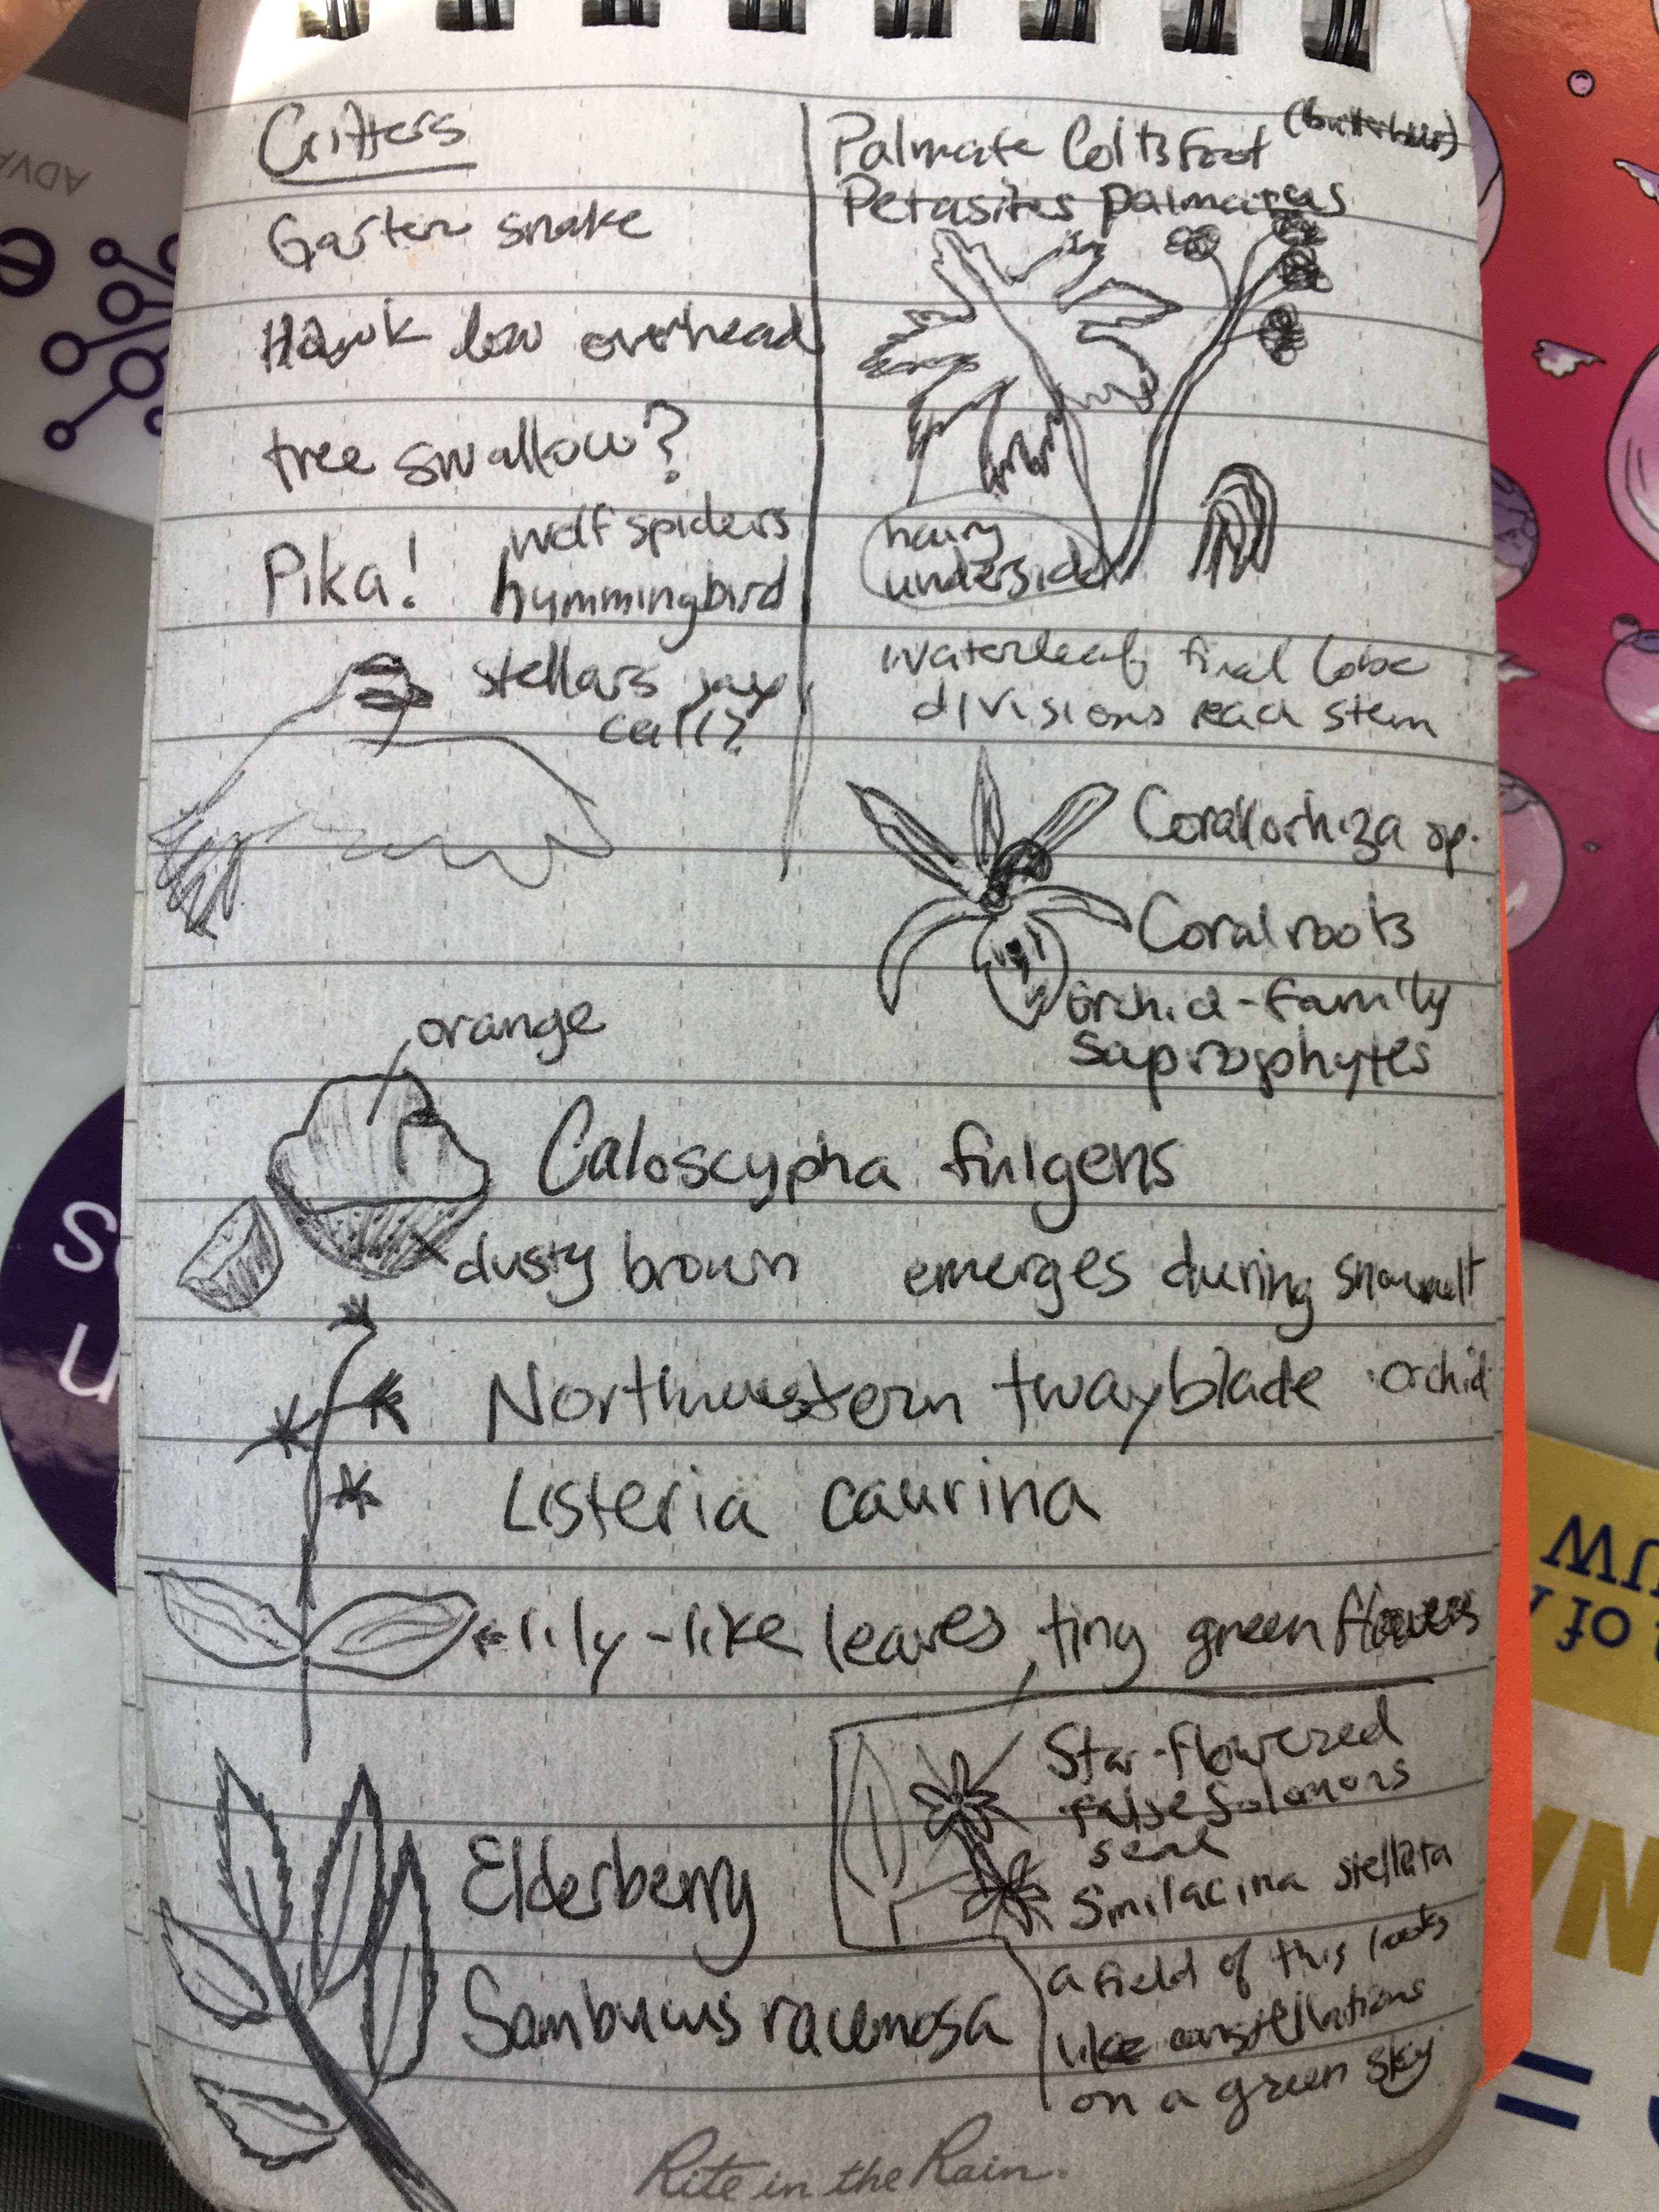 Critters
Garter snake
Hawk low overhead
tree swallow?
wolf spiders
Pika! hummingbird
stellars jay
call?
Palmate Coltsfoot (butterbur)
Petasites palmatus
hairy
underside
waterleaf, final lobe
divisions reach stem
Corallorhiza sp.
Coralroots
Orchid-family
Saprophytes
orange
Caloscypha fulgens
dusty brown emerges during snowmelt
Northwestern twayblade orchid
Listeria caurina
lily-like leaves, tiny green flowers
Star-flowered
False Solomons
seal
Smilacina stellata
a field of this looks
like constellations
on a green sky
Elderberry
Sambucus racemosa
Rite in the Rain.
ADVA
S
U
UW
of
NA